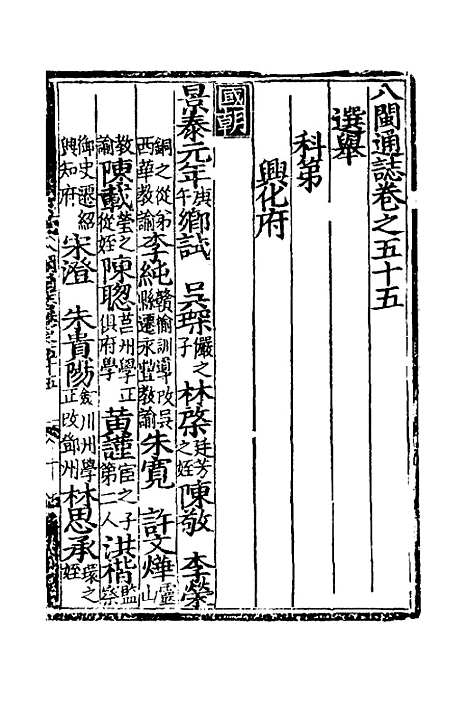 八閩通誌卷之五十五
選舉
科第
興化府
國朝
景泰元年庚午鄉試 吳琛儼之子 林棨廷芳之姪 陳敬 李榮
銅之從弟西華教諭 李純贛榆訓導改吳縣遷永豐教諭 朱寬 許文燁靈山
教諭 陳載瑩之從姪 陳聰莒州學正俱府學 黃謹宦之子第二人 洪楷監察
御史遷紹興知府 宋澄 朱貴陽合川州學正改鄧州 林思承環之姪